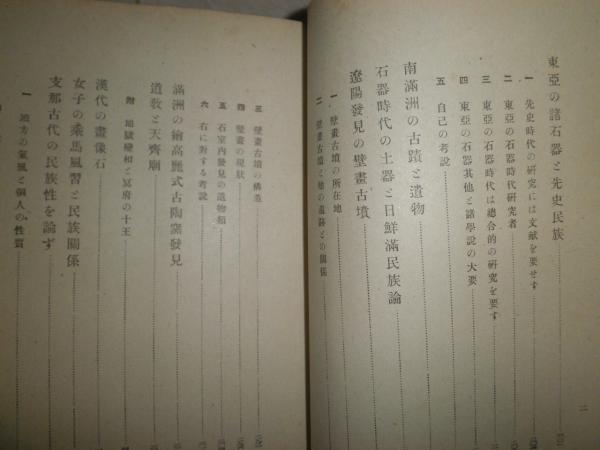 東亞の諸石器と先史民族
一 先史時代の研究には文献を要せず
二 東亞の石器時代研究者
三 東亞の石器時代は綜合的の研究を要す
四 東亞の石器其他と諸學說の大要
五 自己の考說
南滿洲の古蹟と遺物
石器時代の土器と日鮮滿民族論
遼陽發見の壁畫古墳
一 壁畫古墳の所在地
二 壁畫古墳と他の遺跡との關係
二
三 壁畫古墳の構造
四 壁畫の現狀
五 石室內發見の遺物類
六 右に對する考說
滿洲の繪高麗式古陶窯發見
道敎と天齊廟
附 地獄變相と冥府の十王
漢代の畫像石
女子の乘馬風習と民族關係
支那古代の民族性を論ず
一 地方の氣風と個人の性質